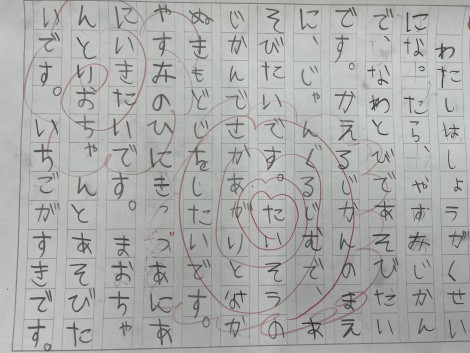 わたしはしょうがくせい
になったら、やすみじかん
で、なわとびであそびたい
です。かえるじかんのまえ
に、じゃんぐるじむで、あ
そびたいです。たいそうの
じかんでさかあがりとなが
ぬきもどじをしたいです。
やすみのひにきっづあにあ
にいきたいです。まおちゃ
んとりおちゃんとあそびた
いです。いちごがすきです。